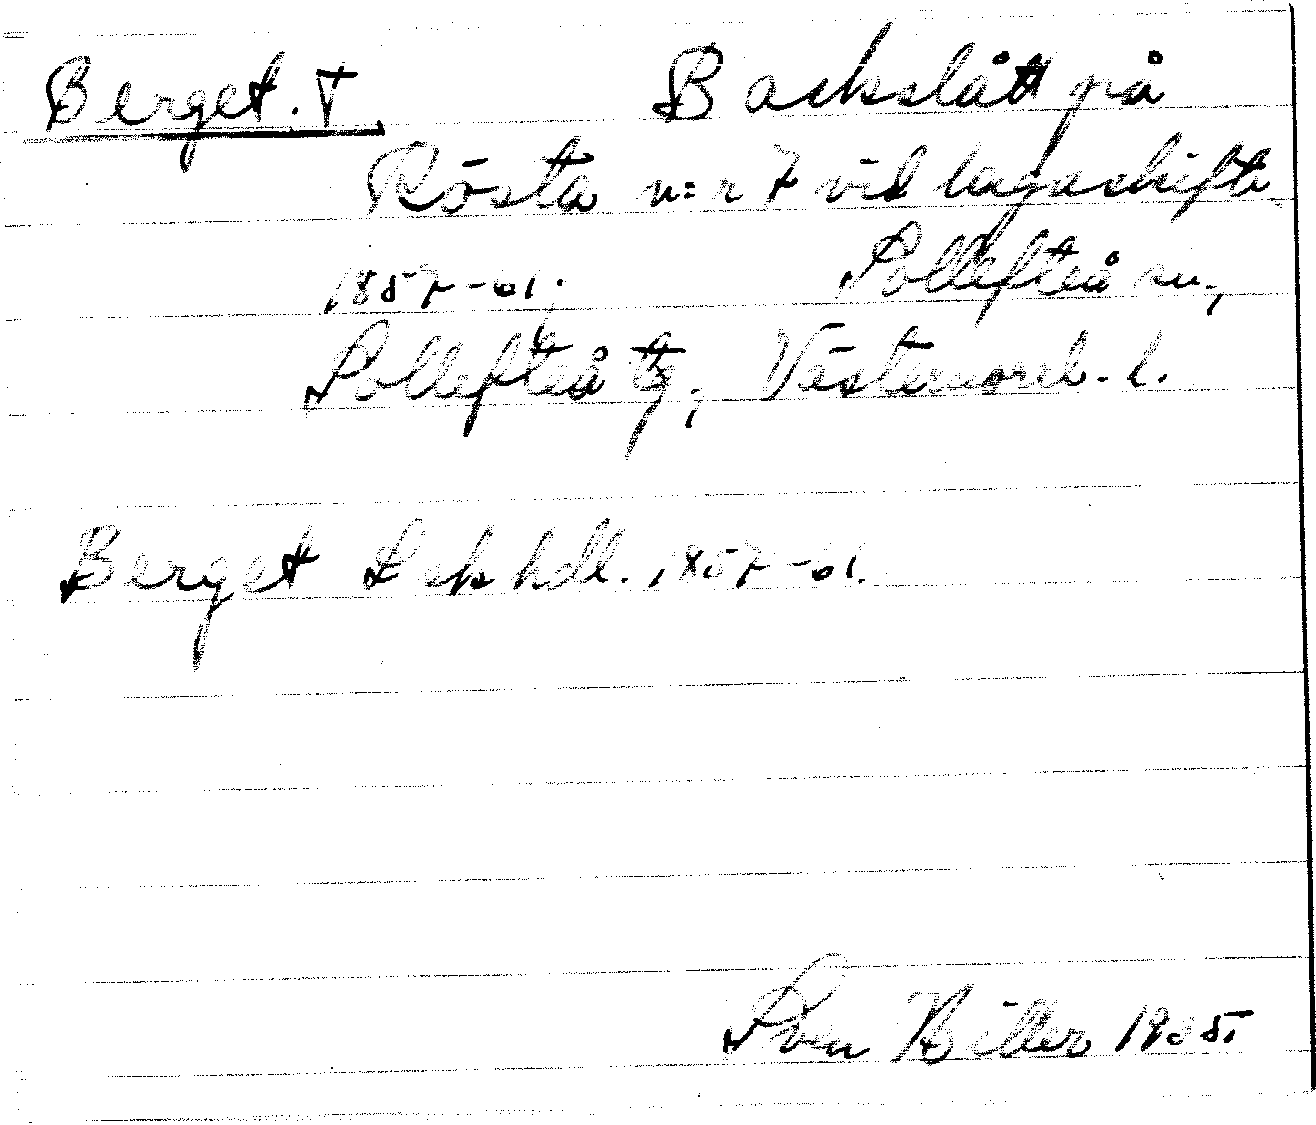 Berget. T Backslått på
Rösta n:r 7 vid lagaskifte
1857-61. Sollefteå sn.,
Sollefteå tg, Västernorrl. l.
Berget Lsk hdl. 1857-61.
Sven 1935